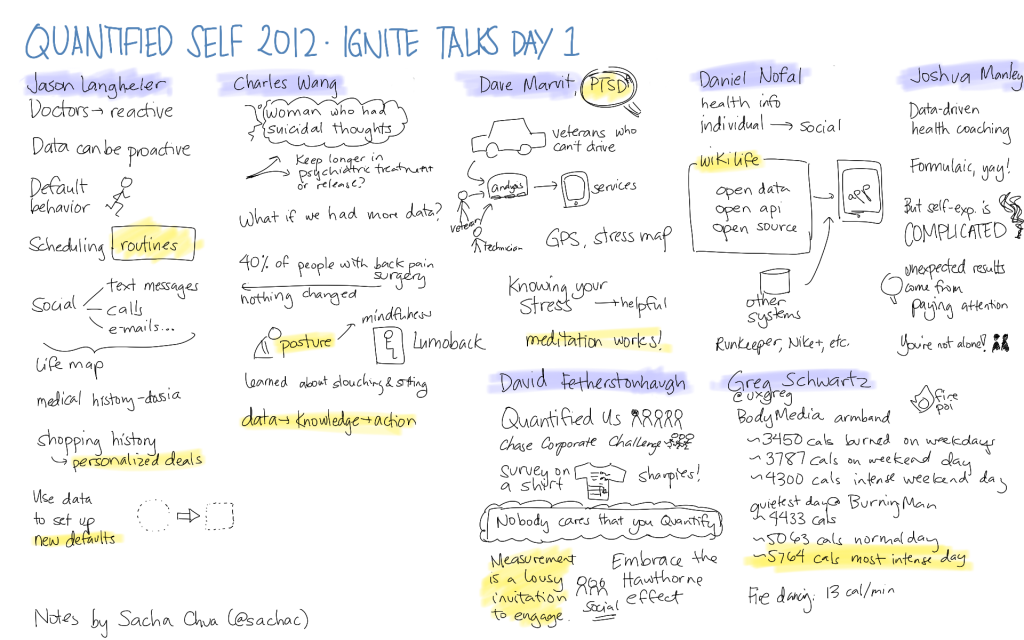 QUANTIFIED SELF 2012 · IGNITE TALKS DAY 1
Jason Langheier
Doctors → reactive
Data can be proactive
Default
behavior
Scheduling routines
Social
text messages
calls
e-mails...
Life map
medical history - dossia
shopping history
↳ personalized deals
Use data
to set up
new defaults
Notes by Sacha Chua (@sachac)
Charles Wang
woman who had
suicidal thoughts
Keep longer in
psychiatric treatment
or release?
What if we had more data?
40% of people with back pain
surgery
nothing changed
mindfulness
posture
Lumoback
learned about slouching & sitting
data → knowledge → action
Dave Marvit, PTSD
veterans who
can't drive
analysis
services
veteran
technician
GPS, stress map
Knowing your
stress → helpful
meditation works!
Daniel Nofal
health info
individual → social
wikilife
open data
open api
open source
app
other
systems
Runkeeper, Nike+, etc.
Joshua Manley
Data-driven
health coaching
Formulaic, yay!
But self-exp. is
COMPLICATED
unexpected results
come from
paying attention
You're not alone!
David Fetherstonhaugh
Quantified Us
Chase Corporate Challenge
Survey on
a shirt
sharpies!
Nobody cares that you Quantify
Measurement
is a lousy
invitation
to engage.
social
Embrace the
Hawthorne
effect
Greg Schwartz
@uxgreg
fire
poi
BodyMedia armband
~3450 cals burned on weekdays
~3787 cals on weekend day
~4300 cals intense weekend day
quietest day @ BurningMan
~4433 cals
~5063 cals normal day
~5764 cals most intense day
Fire dancing: 13 cal/min